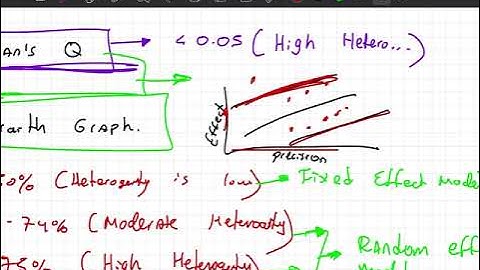 an's Q < 0.05 ( High Hetero...)
arth Graph.
Effect
precision
50% (Heterogenity is low) Fixed Effect Model
- 74% ( Moderate Heterogenity)
75% ( High Heterogenity) Random eff